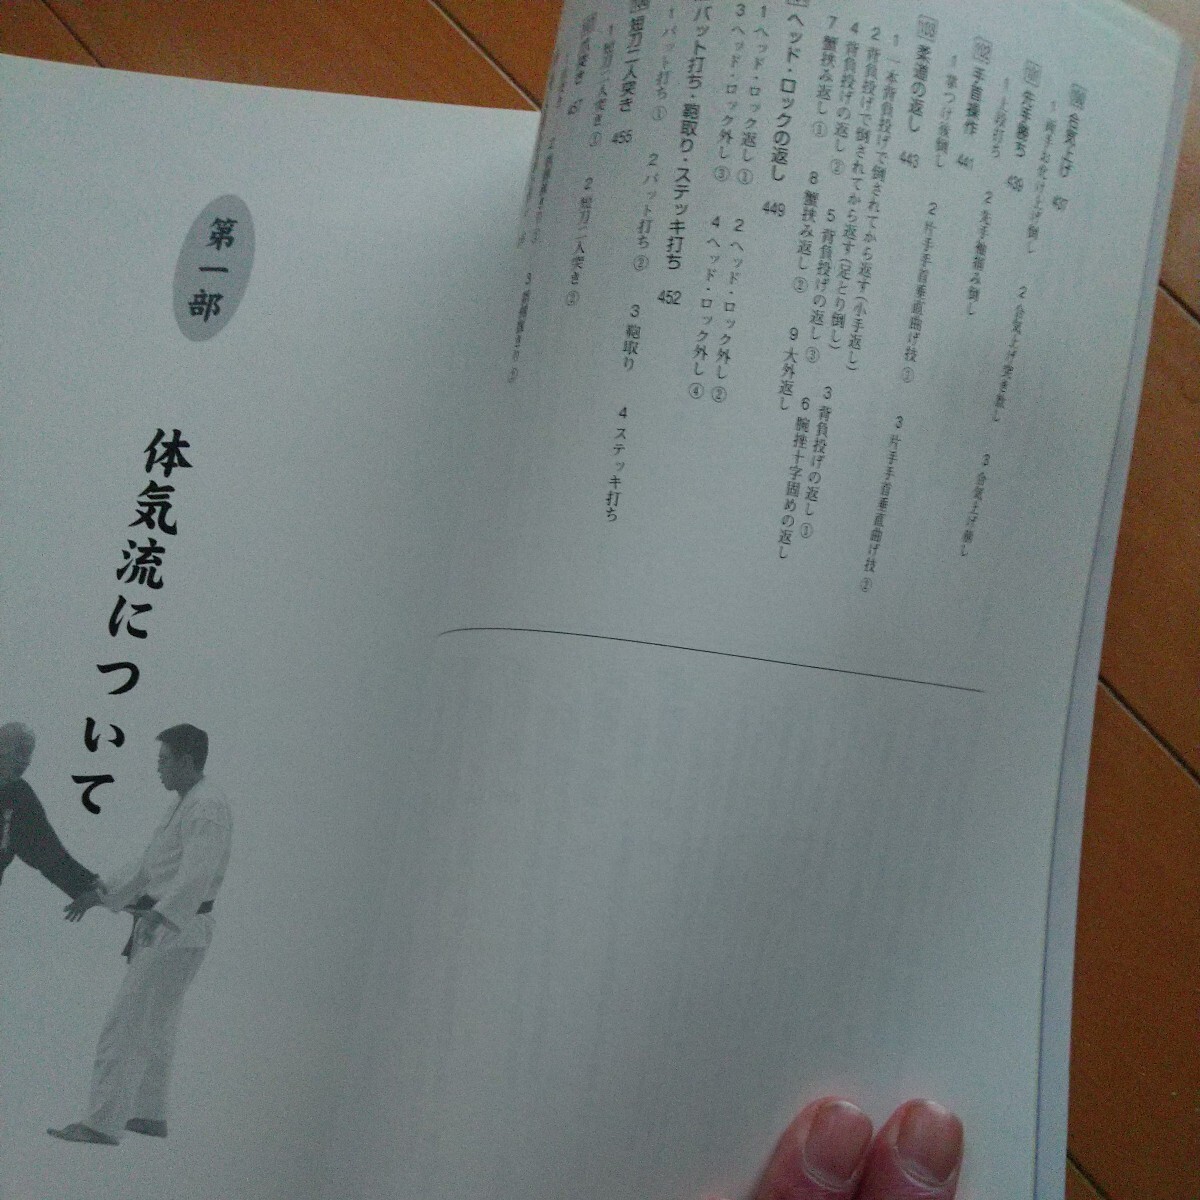 合気上げ 437
1 両手お受け上げ倒し 2 合気上げ突き放し 3 合気上げ崩し
先手勝ち 439
1 上段打ち 2 先手権掴み倒し
102 手首操作 441
1 掌つけ後倒し 2 片手手首垂直曲げ技① 3 片手手首垂直曲げ技②
103 柔道の返し 443
1 一本背負投げで倒されてから返す(小手返し)
2 背負投げで倒されてから返す(足とり倒し) 3 背負投げの返し①
4 背負投げの返し② 5 背負投げの返し③ 6 腕挫十字固めの返し
7 蟹挟み返し① 8 蟹挟み返し② 9 大外返し
ヘッド・ロックの返し 449
1 ヘッド・ロック返し① 2 ヘッド・ロック外し②
3 ヘッド・ロック外し③ 4 ヘッド・ロック外し④
バット打ち・鞄取り・ステッキ打ち 452
1 バット打ち① 2 バット打ち② 3 鞄取り 4 ステッキ打ち
短刀二人突き 455
1 短刀二人突き① 2 短刀二人突き②
457
第一部
体気流について